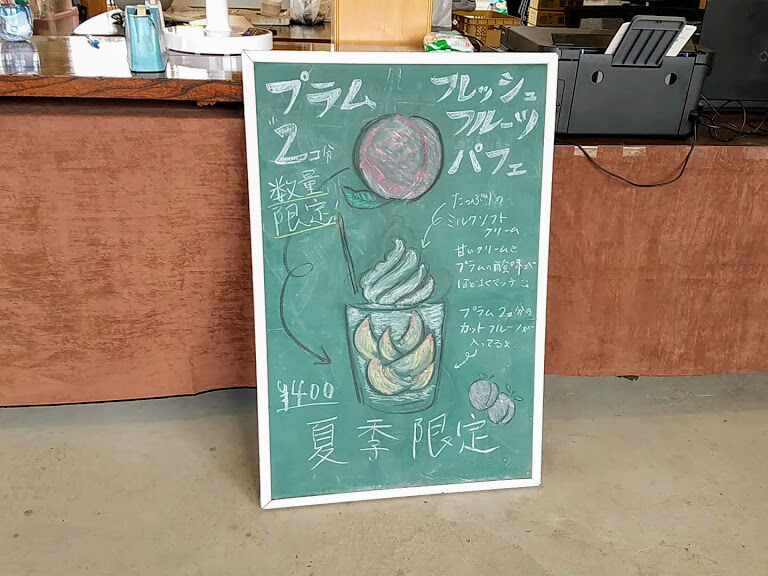 プラム
2コ分
数量
限定!
フレッシュ
フルーツ
パフェ
たっぷりの
ミルクソフト
クリーム
甘いクリームと
プラムの酸味が
ほどよくマッチ
プラム2コ分の
カットフルーツが
入ってるよ
¥400
夏季限定